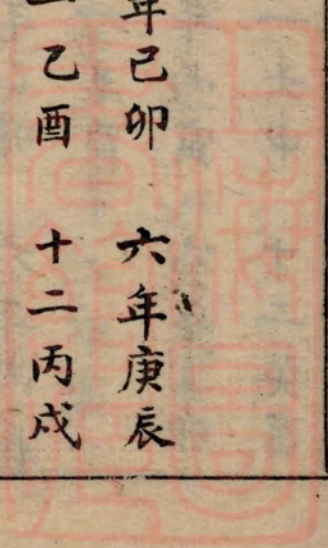 年己卯 六年庚辰
乙酉 十二丙戌